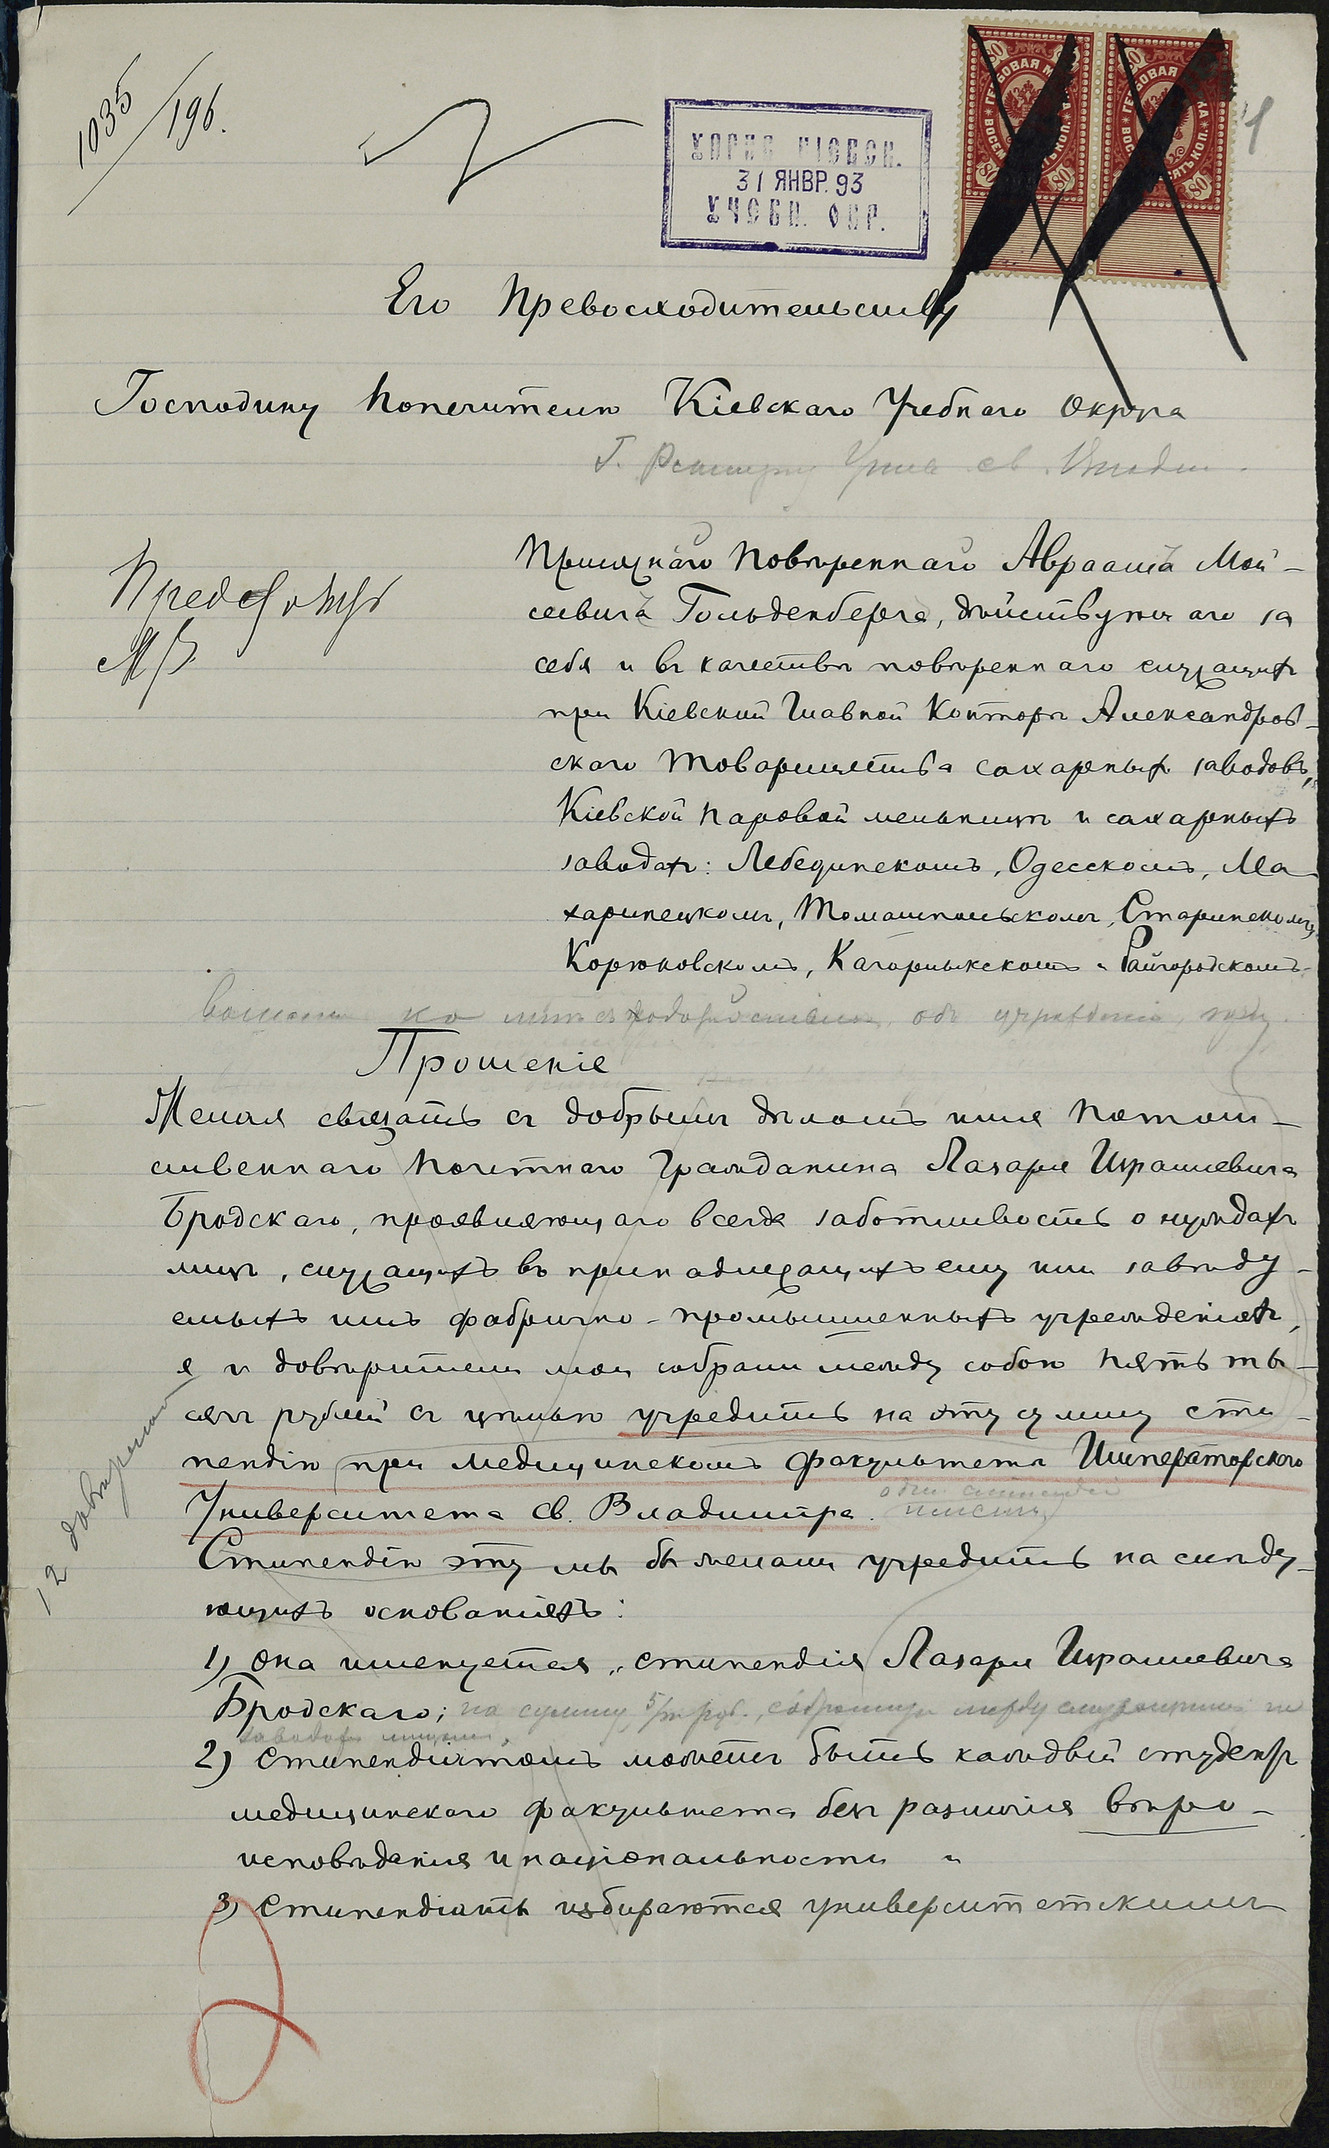 1035
196.
31 ЯНВР. 93
ГЕРБОВАЯ МАРКА
ВОСЕМЬДЕСЯТЪ КОП.
80
Его Превосходительству
Господину Попечителю Кіевскаго Учебнаго Округа
Г. Ректору Унив. св. Влад
Присяжнаго Повѣреннаго Авраама Мои-
сеевича Гольденберга, дѣйствующаго за
себя и въ качествѣ повѣреннаго служащихъ
при Кіевской Главной Конторѣ Александров-
скаго Товарищества сахарныхъ заводовъ,
Кіевской паровой мельницѣ и сахарныхъ
заводахъ: Лебединскомъ, Одесскомъ, Ма-
харинецкомъ, Томашпольскомъ, Старинскомъ,
Корюковскомъ, Кагарлыкскомъ и Райгородскомъ
Прошеніе
Желая связать съ добрымъ дѣломъ имя Потом-
ственнаго Почетнаго Гражданина Лазаря Израилевича
Бродскаго, проявляющаго всегда заботливость о нуждахъ
лицъ, служащихъ въ принадлежащихъ ему или завѣду-
емыхъ имъ фабрично-промышленныхъ учрежденіяхъ,
я и довѣрители мои собрали между собою пять ты-
сячъ рублей съ цѣлью учредить на эту сумму сти-
пендію при медицинскомъ факультетѣ Императорскаго
Университета св. Владиміра.
12 довѣрителей
Стипендію эту мы бы желали учредить на слѣду-
ющихъ основаніяхъ:
1) она именуется „стипендія Лазаря Израилевича
Бродскаго; на сумму 5/т руб., собранную между служащими на
заводахъ лицами,
2) стипендіатомъ можетъ быть каждый студентъ
медицинскаго факультета безъ различія вѣро-
исповѣданія и національности "
3) стипендіаты избираются университетскимъ